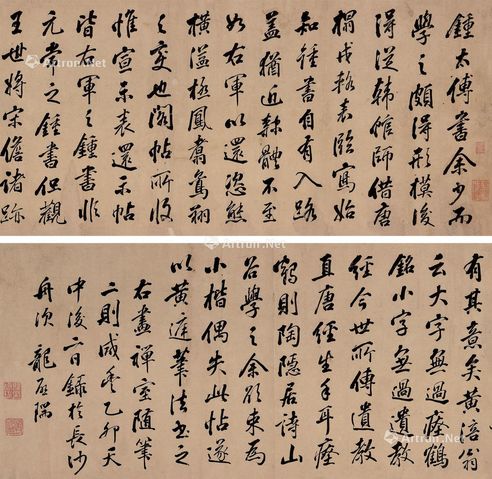 鍾太傅書余少而
學之頗得形模後
得從韓館師借唐
搨戎輅表臨寫始
知鍾書自有入路
蓋猶近隸體不至
如右軍以還恣態
橫溢極鳳翥鸞翔
之變也閣帖所收
惟宣示表還示帖
皆右軍之鍾書非
元常之鍾書但觀
王世將宋儋諸跡
有其意矣黃涪翁
云大字無過瘞鶴
銘小字無過遺教
經今世所傳遺教
直唐經生手耳瘞
鶴則陶隱居詩山
谷學之余欲東為
小楷偶失此帖遂
以黃庭筆法書之
右畫禪室隨筆
二則咸豐乙卯天
中後一日錄於長沙
舟次 龍啟瑞
Artron.Net
Artron.Net